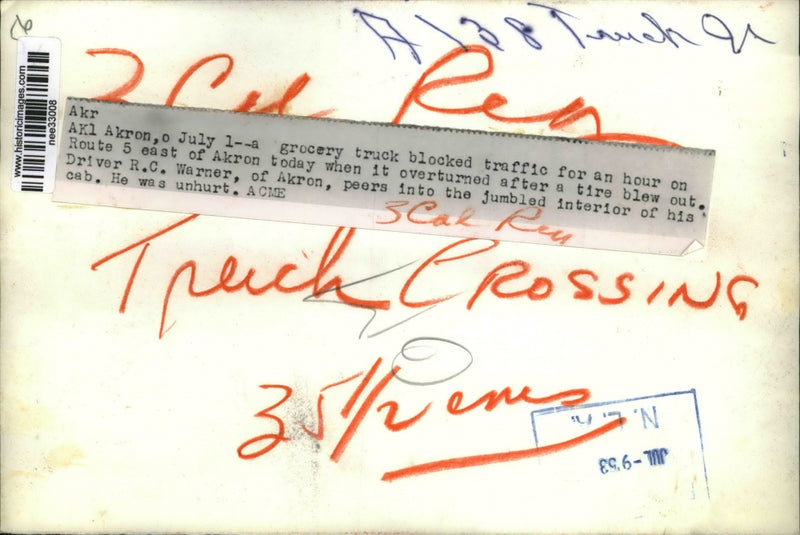 A/38 Truck
www.historicimages.com
nee33008
3 Col Ren
Akr
AK1 Akron,o July 1--a grocery truck blocked traffic for an hour on
Route 5 east of Akron today when it overturned after a tire blew out.
Driver R.C. Warner, of Akron, peers into the jumbled interior of his
cab. He was unhurt. ACME
3 Col Ren
Truck CROSSING
35 1/2 ems
N.L.R.
JUL-9'53